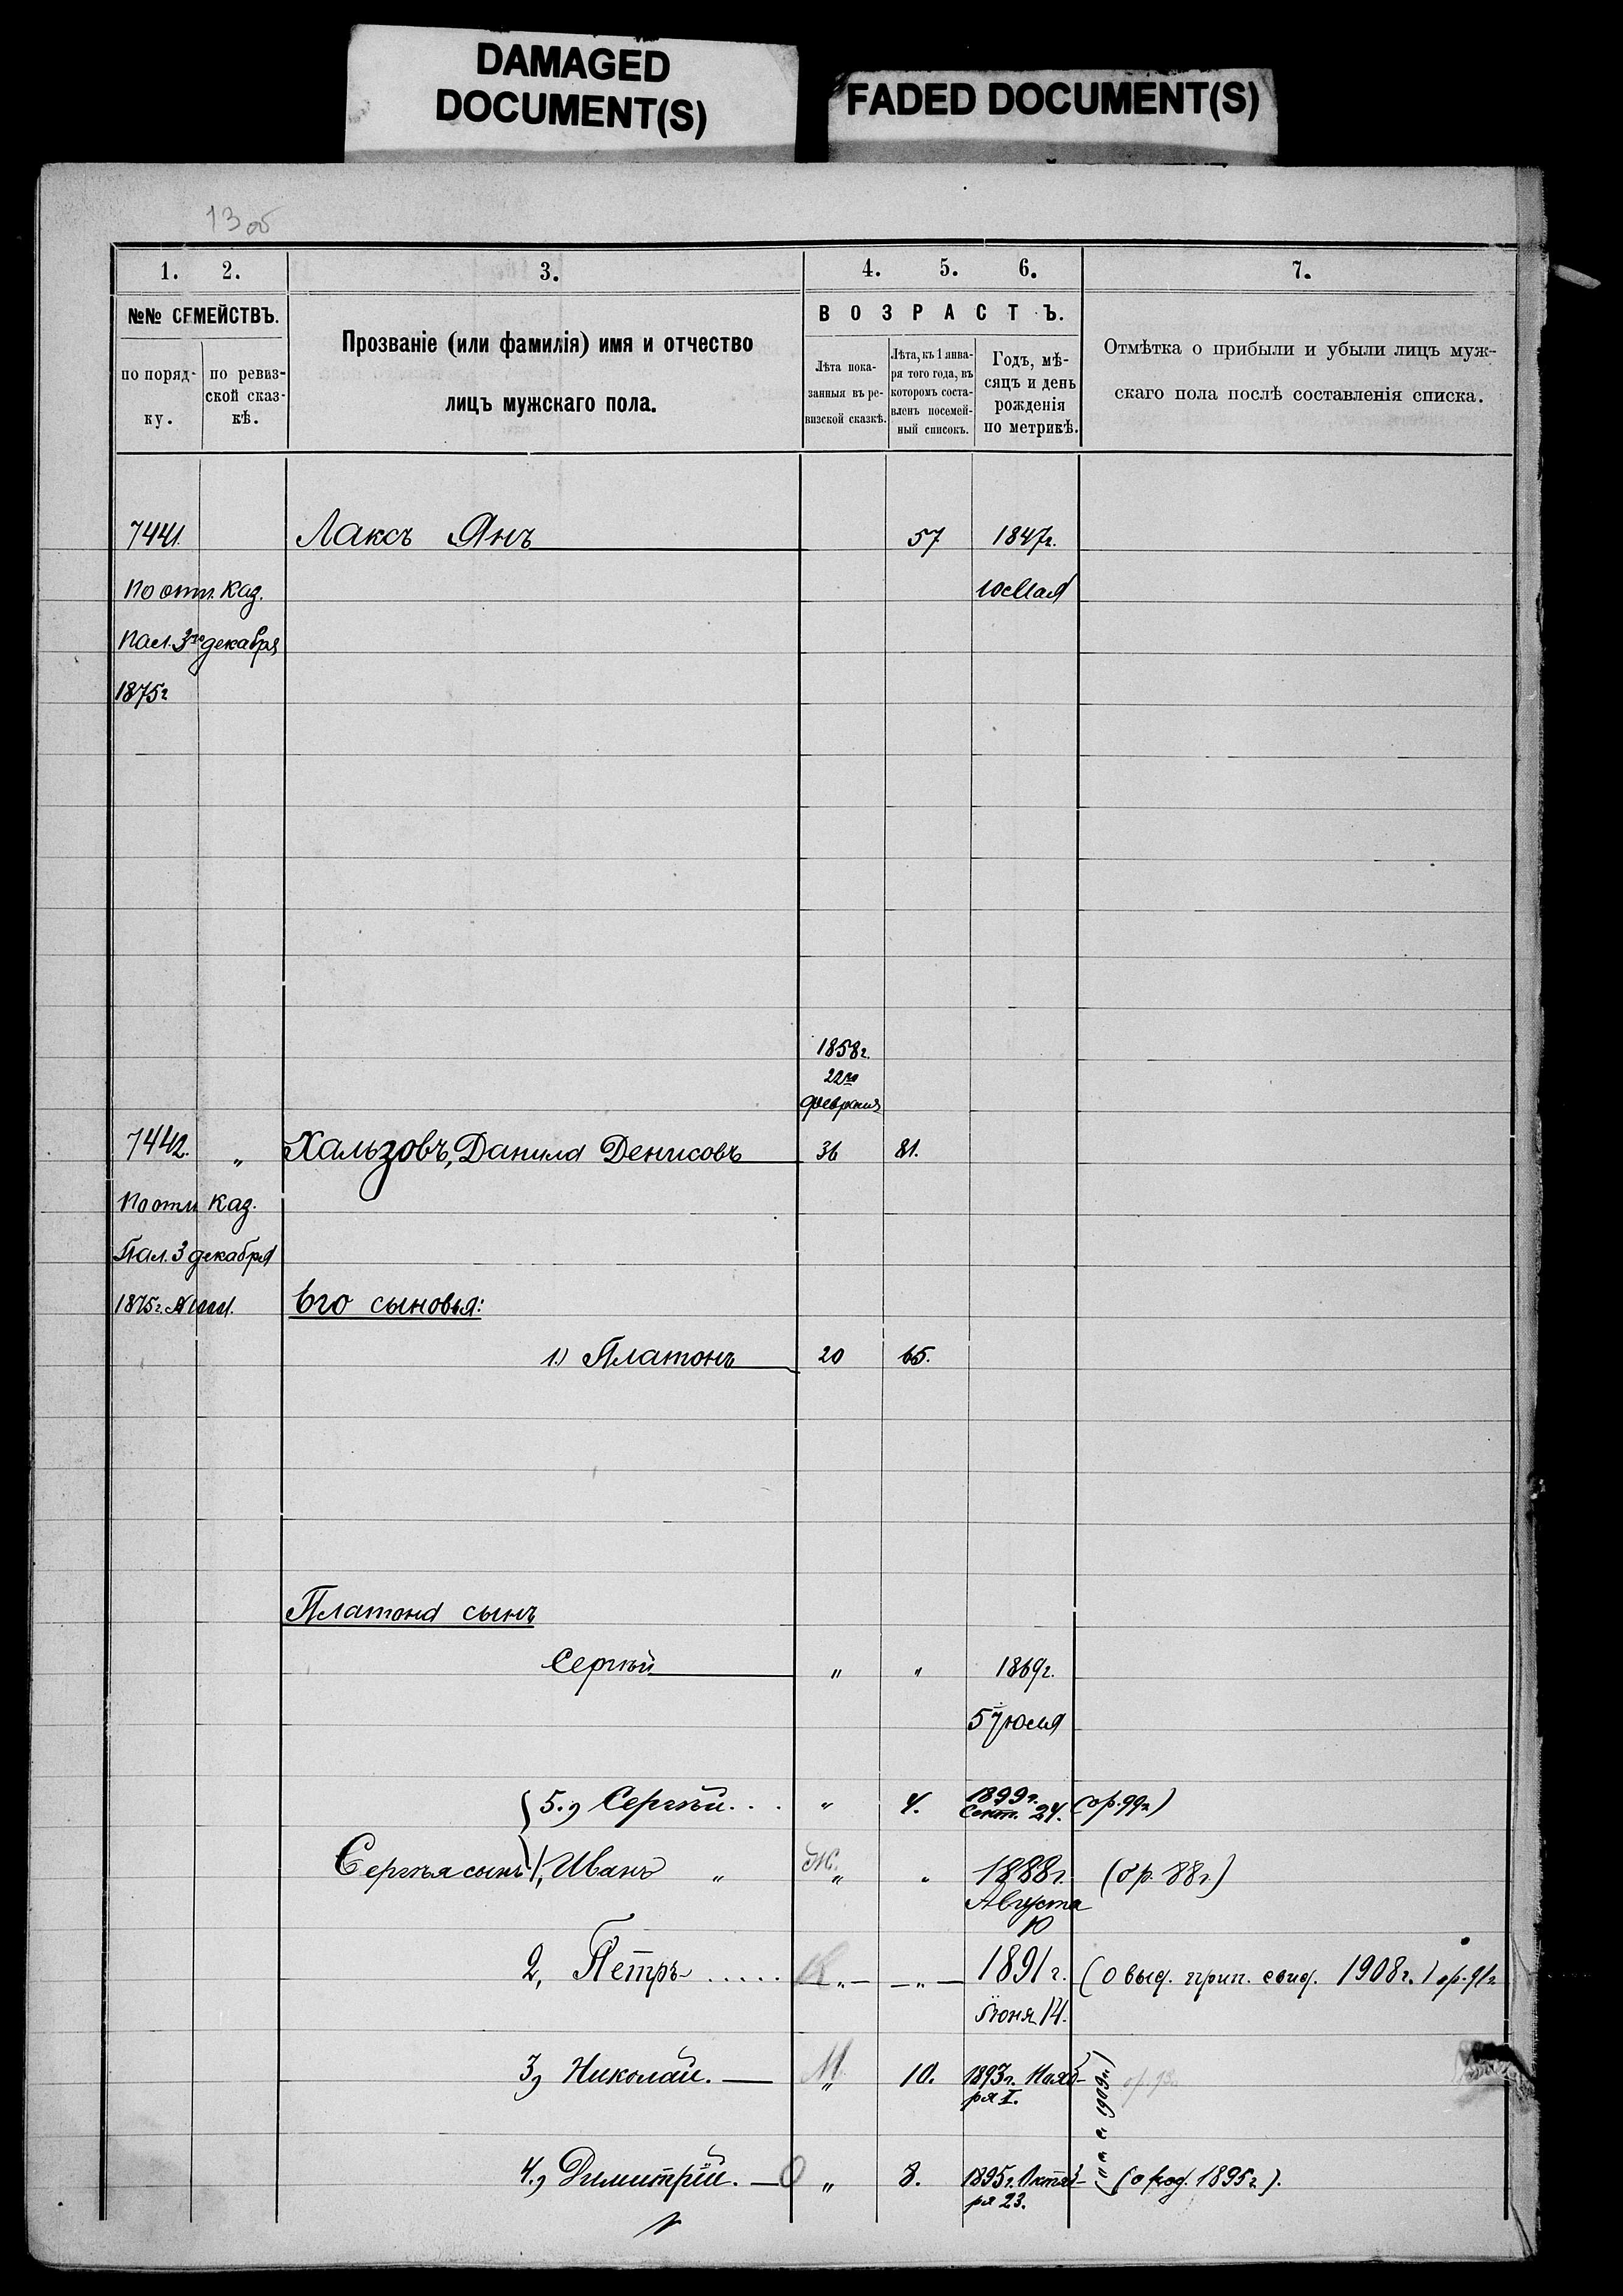 DAMAGED
DOCUMENT(S)
FADED DOCUMENT(S)
13 об
1. 2. 3. 4. 5. 6. 7.
№№ СЕМЕЙСТВЪ.
по поряд-
ку.
по ревиз-
ской сказ-
кѣ.
Прозваніе (или фамилія) имя и отчество
лицъ мужскаго пола.
ВОЗРАСТЪ.
Лѣта пока-
занныя въ ре-
визской сказкѣ.
Лѣта, къ 1 янва-
ря того года, въ
которомъ соста-
вленъ посемей-
ный списокъ.
Годъ, мѣ-
сяцъ и день
рожденія
по метрикѣ.
Отмѣтка о прибыли и убыли лицъ муж-
скаго пола послѣ составленія списка.
7441. Лаксъ Янъ 57 1847г.
По отн. Каз. 10 Мая
Пал. 3го декабря
1875г
1858г.
22го
февраля
7442. „ Хальзовъ, Данила Денисовъ 36 81.
По отн Каз.
Пал. 3 декабря
1875г. Его сыновья:
1.) Платонъ 20 65.
Платона сынъ
Сергѣй „ „ 1869г.
5 Іюля
5., Сергѣй... „ 4. 1899г. (ор. 99г)
Сент. 24.
Сергѣя сынъ 1, Иванъ „ „ „ 1888г. (ор. 88г.)
Августа
10
2, Петръ ..... —„— —„— 1891г. (о выд. прип. свид. 1908г.) ор. 91г
Іюня 14.
3, Николай. — „ 10. 1893г. Нояб-
ря 1.
4., Димитрій. — „ 8. 1895г. Октяб- (о род. 1895г.).
ря 23.